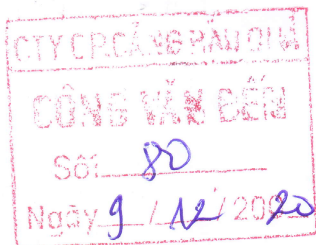 CTY CP CẢNG
CÔNG VĂN ĐẾN
Số: 80
Ngày 9 / 12 / 2020